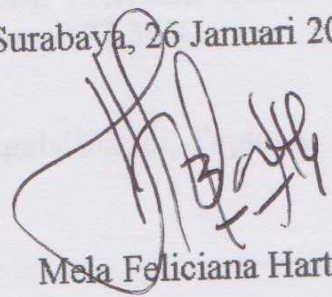 Surabaya, 26 Januari 20
Mela Feliciana Hart